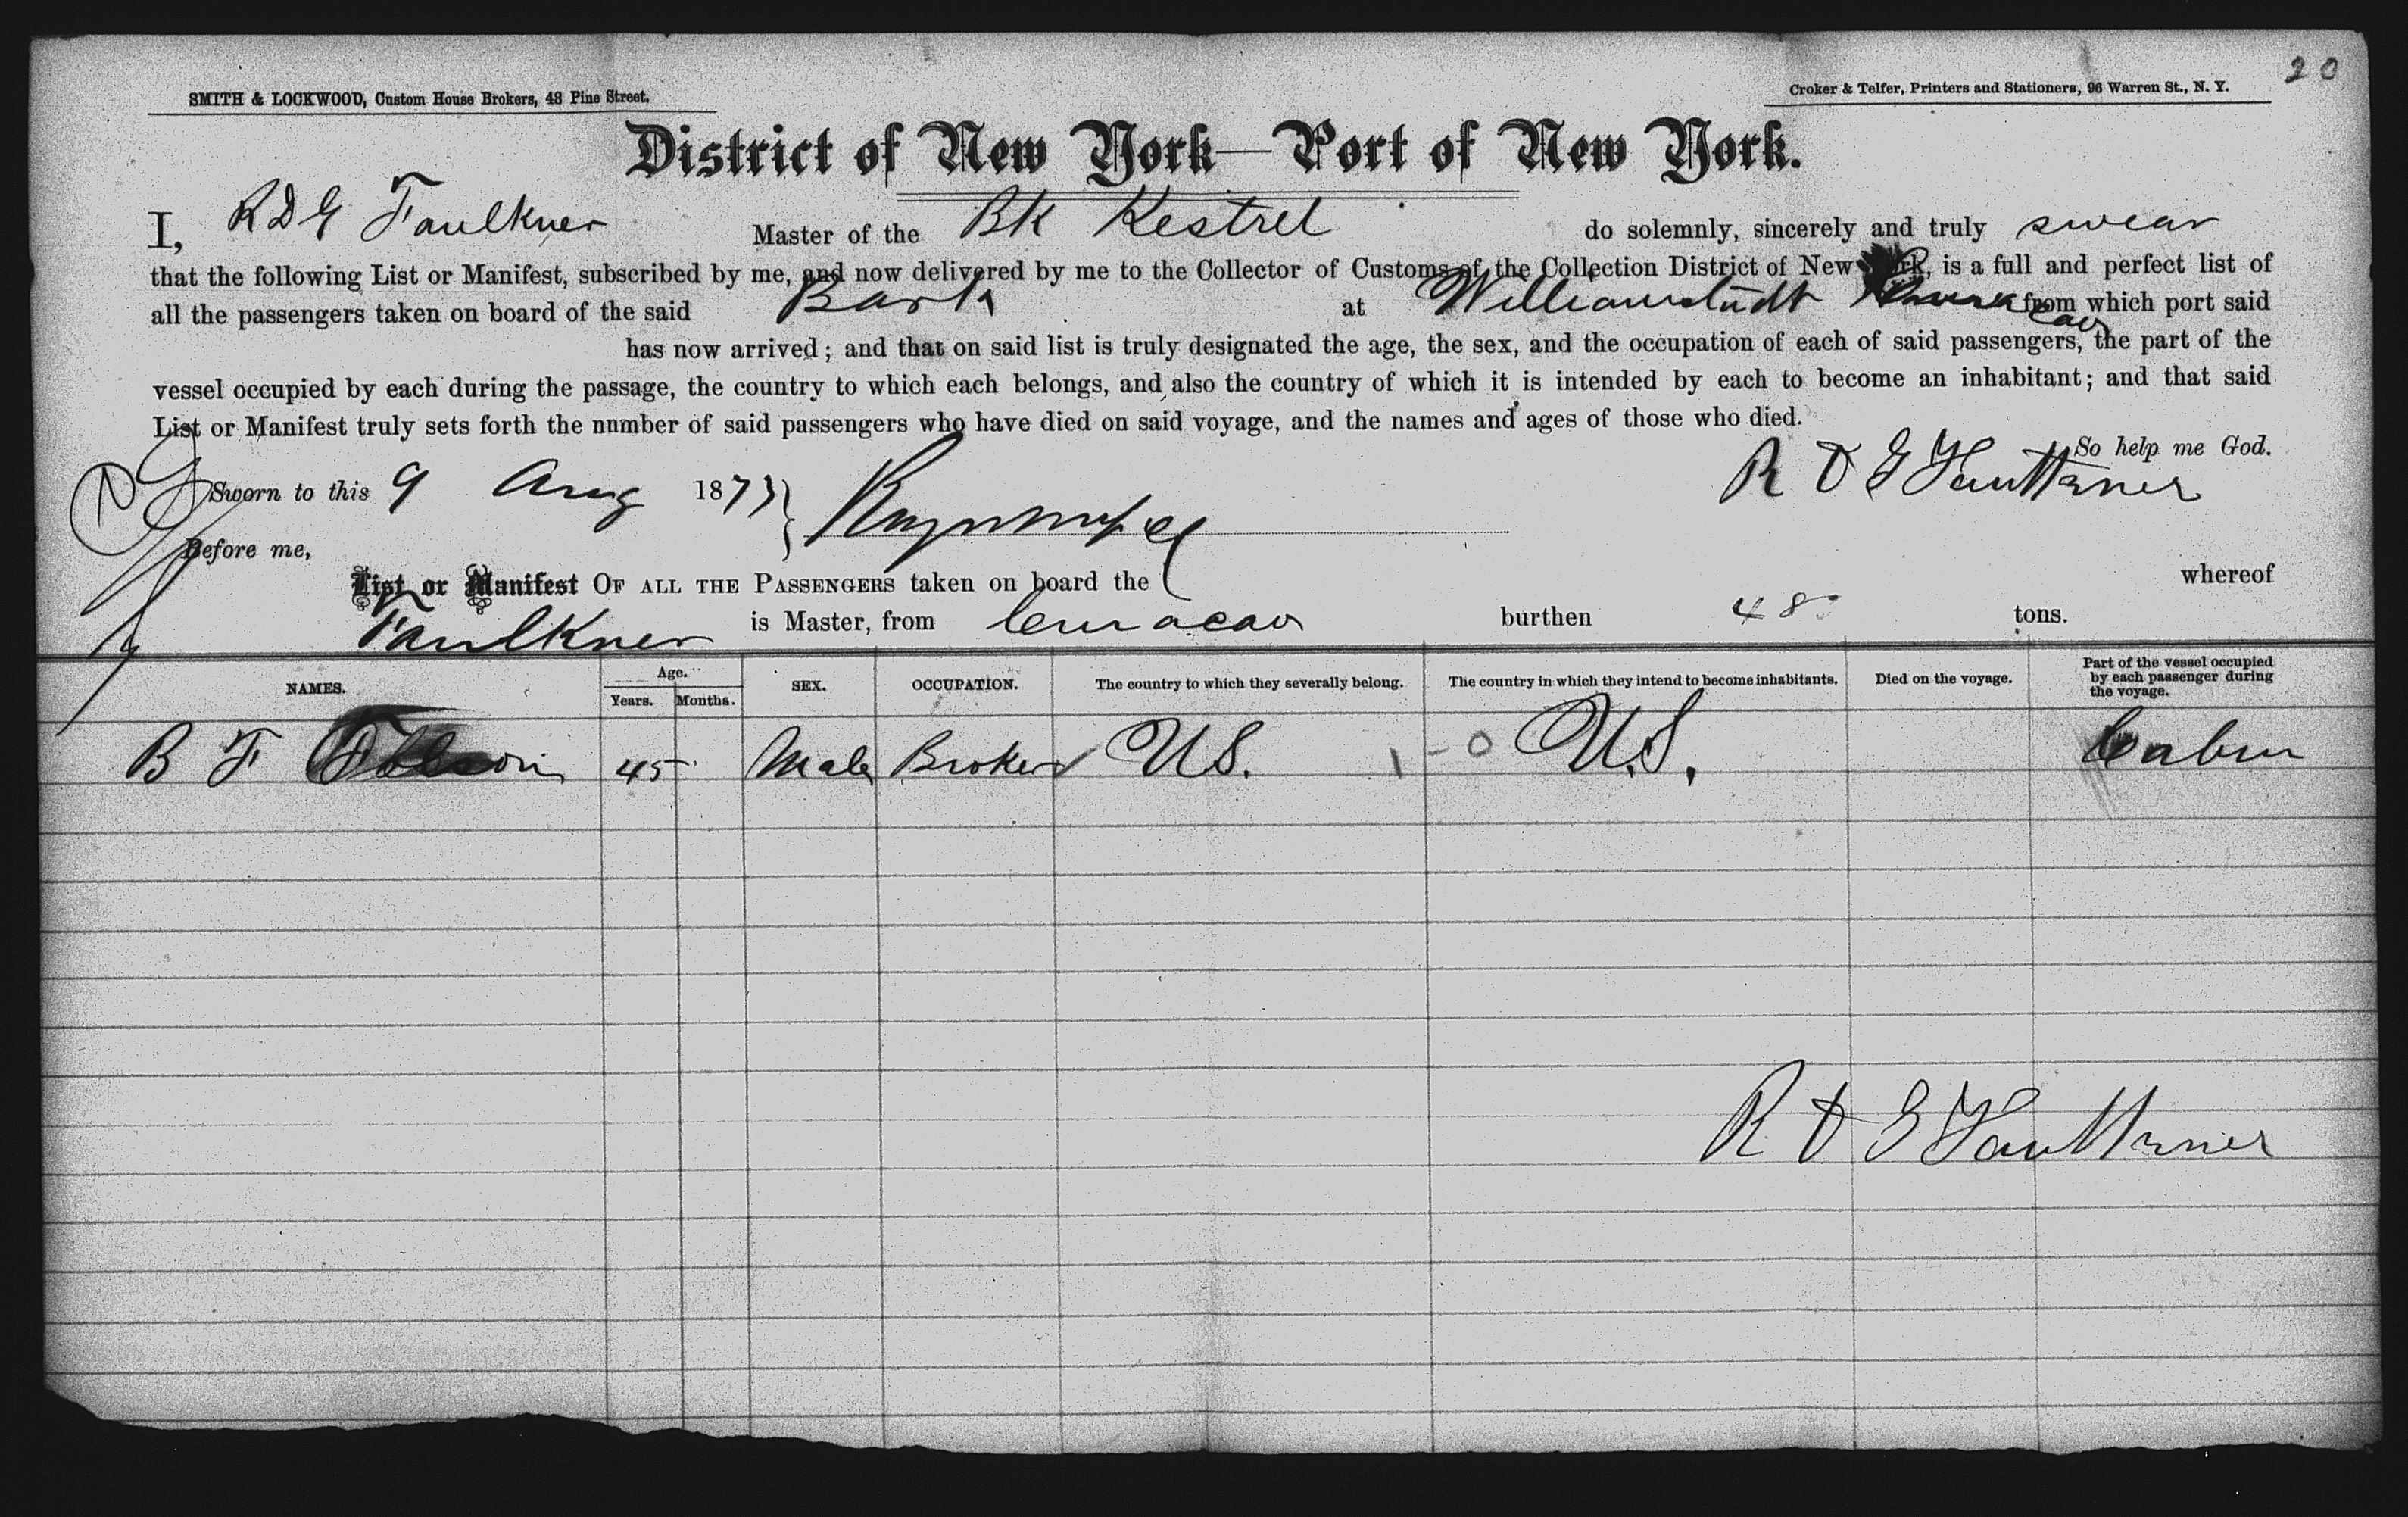 20
SMITH & LOCKWOOD, Custom House Brokers, 48 Pine Street.
Croker & Telfer, Printers and Stationers, 96 Warren St., N. Y.
District of New York—Port of New York.
I, R D G Faulkner Master of the Bk Kestrel do solemnly, sincerely and truly swear
that the following List or Manifest, subscribed by me, and now delivered by me to the Collector of Customs of the Collection District of New York, is a full and perfect list of
all the passengers taken on board of the said Bark at Williamstadt from which port said
has now arrived; and that on said list is truly designated the age, the sex, and the occupation of each of said passengers, the part of the
vessel occupied by each during the passage, the country to which each belongs, and also the country of which it is intended by each to become an inhabitant; and that said
List or Manifest truly sets forth the number of said passengers who have died on said voyage, and the names and ages of those who died.
So help me God.
Sworn to this 9 Aug 1873 R D G Faulkner
Before me,
List or Manifest OF ALL THE PASSENGERS taken on board the whereof
Faulkner is Master, from Curacao burthen 48 tons.
NAMES. Age. Years. Months. SEX. OCCUPATION. The country to which they severally belong. The country in which they intend to become inhabitants. Died on the voyage. Part of the vessel occupied by each passenger during the voyage.
B F 45 Male Broker US. 1-0 U.S. Cabin
R D G Faulkner